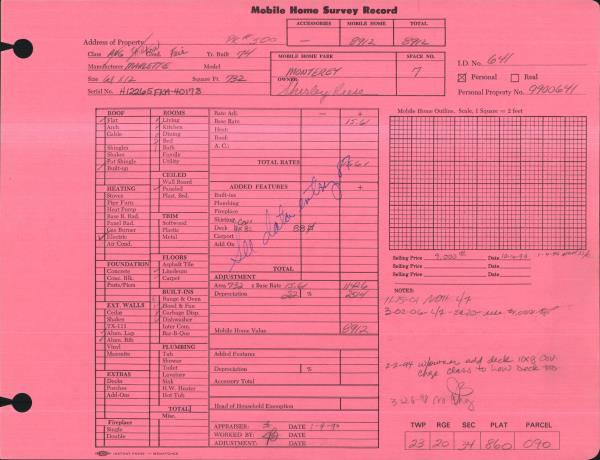 Mobile Home Survey Record
ACCESSORIES MOBILE HOME TOTAL
— 8912 8912
Address of Property
Class Avg Cond. Fair Yr. Built 74
MOBILE HOME PARK SPACE NO.
MONTEREY 7
OWNER
Shirley
Manufacturer MARLETTE Model
Size 61 x 12 Square Ft. 732
Serial No.
I.D. No. 641
☒ Personal ☐ Real
Personal Property No. 9900641
ROOF
Flat
Arch
Gable
Shingles
Shakes
Fat Shingle
Built-up
HEATING
Stoves
Pipe Furn.
Heat Pump
Base B. Rad.
Panel Rad.
Gas Burner
Electric
Air Cond.
FOUNDATION
Concrete
Conc. Blk.
Posts/Piers
EXT. WALLS
Cedar
Shakes
TX-111
Alum. Lap
Alum. Rib
Vinyl
Masonite
EXTRAS
Decks
Porches
Add-Ons
Fireplace
Single
Double
ROOMS
Living
Kitchen
Dining
Bed
Bath
Family
Utility
CEILED
Wall Board
Paneled
Plast. Bed.
TRIM
Softwood
Plastic
Metal
FLOORS
Asphalt Tile
Linoleum
Carpet
BUILT-INS
Range & Oven
Hood & Fan
Garbage Disp.
Dishwasher
Inter Com.
Bar-B-Que
PLUMBING
Tub
Shower
Toilet
Lavatory
Sink
H.W. Heater
Hot Tub
TOTAL
Misc.
Rate Adj. — +
Base Rate 15.61
Heat:
Roof:
A. C.:
TOTAL RATES 15.61
ADDED FEATURES +
Built-ins
Plumbing
Fireplace
Skirting
Deck
Carport
Add On
See data entry
TOTAL
ADJUSTMENT
Area 732 x Base Rate 15.61 11426
Depreciation 22 % 2514
Mobile Home Value 8912
Added Features
Depreciation %
Accessory Total
Head of Household Exemption
APPRAISER: DATE 1-9-90
WORKED BY: DATE
ADJUSTMENT: DATE
Mobile Home Outline. Scale, 1 Square = 2 feet
Selling Price 9,000 Date
Selling Price Date
Selling Price Date
NOTES:
11-15-01
3-02-06
2-2-94 add deck 10x8 cov.
chge class to Low
TWP RGE SEC PLAT PARCEL
23 20 34 860 090